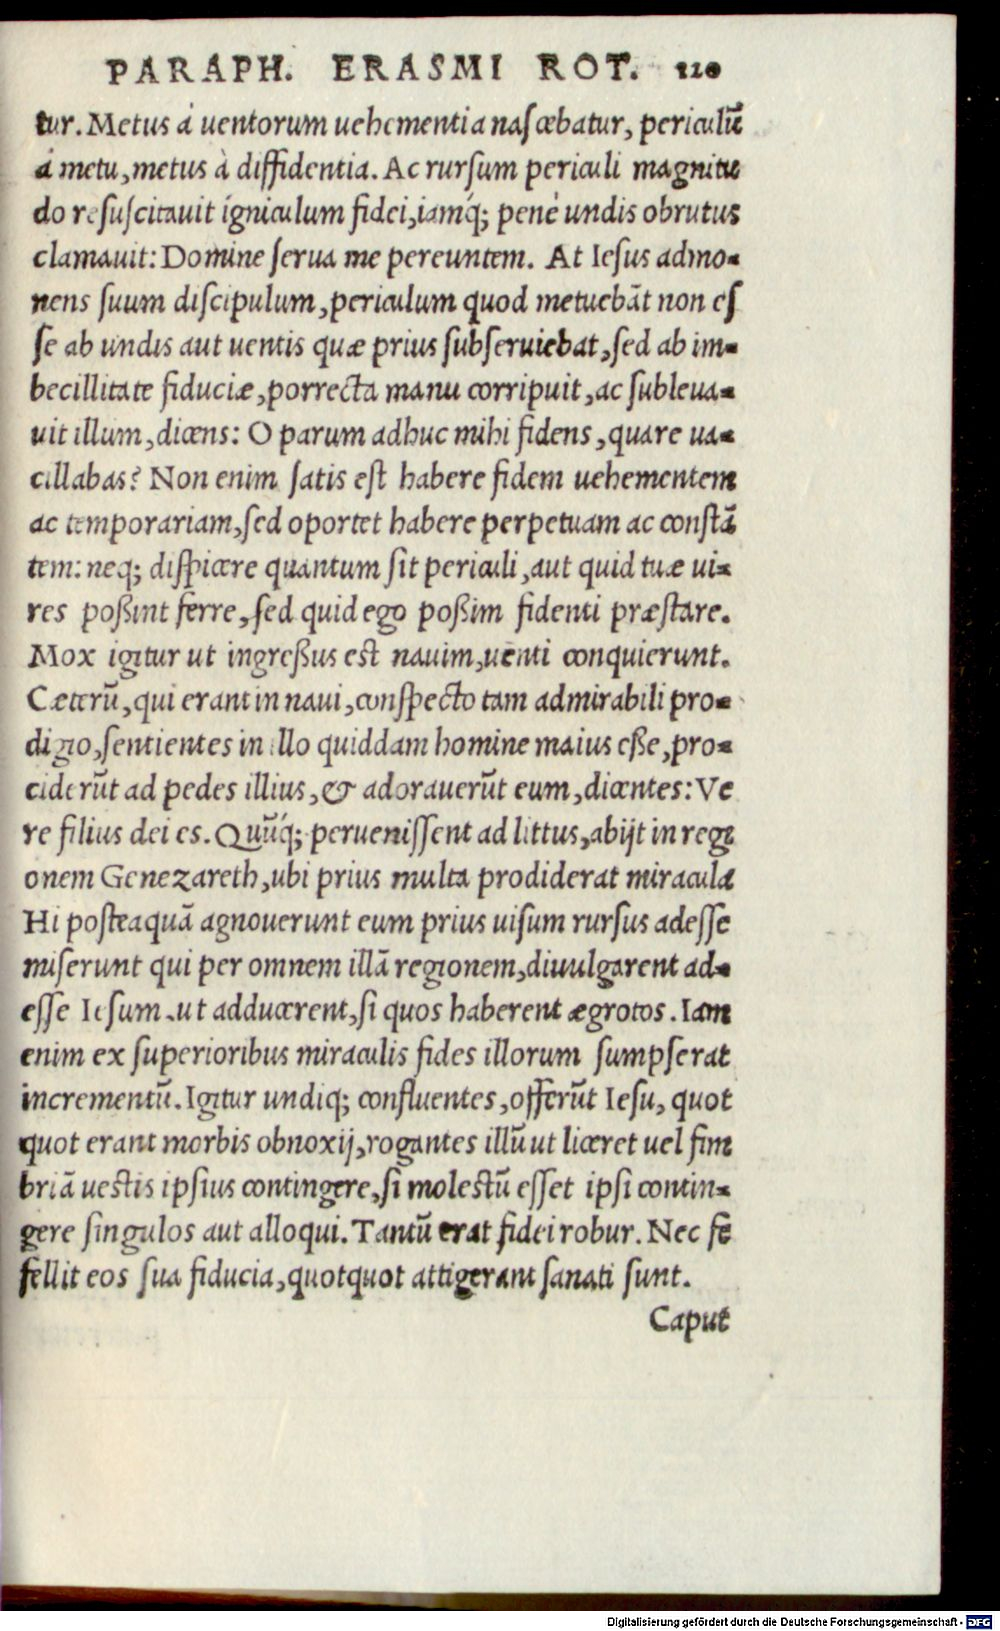 PARAPH. ERASMI ROT. 120
tur. Metus á uentorum uehementia nascebatur, periculũ
á metu, metus à diffidentia. Ac rursum periculi magnitu
do resuscitauit igniculum fidei, iamq́; penè undis obrutus
clamauit: Domine serua me pereuntem. At Iesus admo-
nens suum discipulum, periculum quod metuebãt non es
se ab undis aut uentis quæ prius subseruiebat, sed ab im-
becillitate fiduciæ, porrecta manu corripuit, ac subleua-
uit illum, dicens: O parum adhuc mihi fidens, quare ua-
cillabas? Non enim satis est habere fidem uehementem
ac temporariam, sed oportet habere perpetuam ac constã
tem: neq; dispicere quantum sit periculi, aut quid tuæ ui-
res poßint ferre, sed quid ego poßim fidenti præstare.
Mox igitur ut ingreßus est nauim, uenti conquierunt.
Cæterũ, qui erant in naui, conspecto tam admirabili pro-
digio, sentientes in illo quiddam homine maius eße, pro-
ciderũt ad pedes illius, & adorauerũt eum, dicentes: Ve
re filius dei es. Quũq́; peruenissent ad littus, abijt in regi
onem Genezareth, ubi prius multa prodiderat miracula
Hi posteaquã agnouerunt eum prius uisum rursus adesse
miserunt qui per omnem illã regionem, diuulgarent ad-
esse Iesum, ut adducerent, si quos haberent ægrotos. Iam
enim ex superioribus miraculis fides illorum sumpserat
incrementũ. Igitur undiq; confluentes, offerũt Iesu, quot
quot erant morbis obnoxij, rogantes illũ ut liceret uel fim
briã uestis ipsius contingere, si molestũ esset ipsi contin-
gere singulos aut alloqui. Tantũ erat fidei robur. Nec fe
fellit eos sua fiducia, quotquot attigerant sanati sunt.
Caput
Digitalisierung gefördert durch die Deutsche Forschungsgemeinschaft - DFG